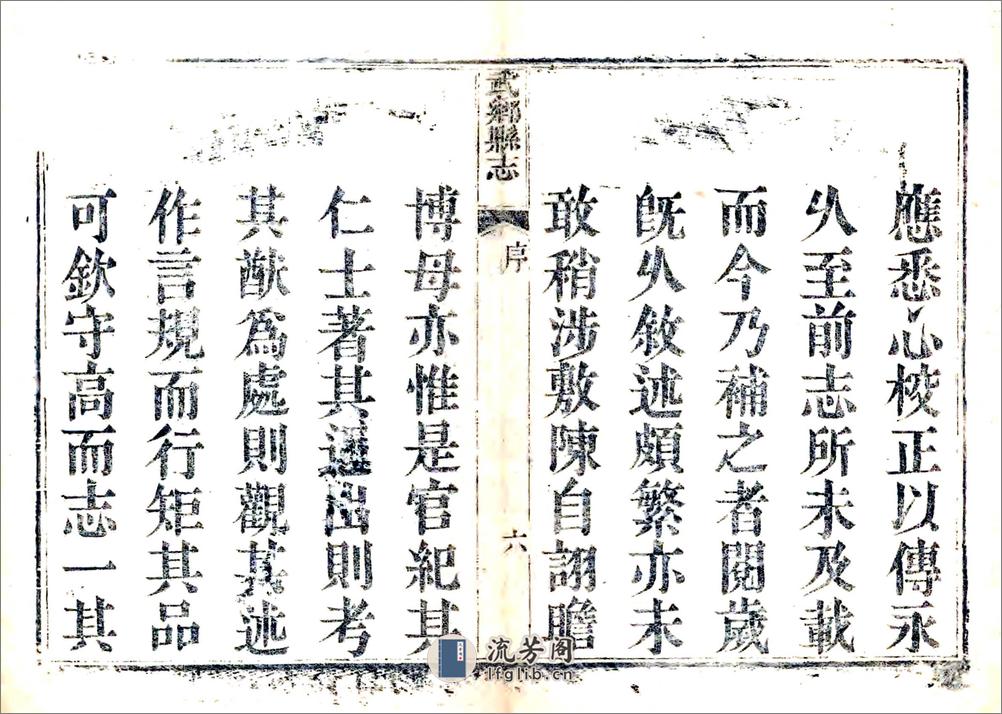 應悉心校正以傳永
久至前志所未及載
而今乃補之者閱歲
旣久敘述頗繁亦未
敢稍涉敷陳自詡瞻
武鄉縣志
序
六
博毋亦惟是官紀其
仁士著其逕出則考
其猷爲處則觀其述
作言規而行矩其品
可欽守高而志一其
流芳阁
lfglib.cn